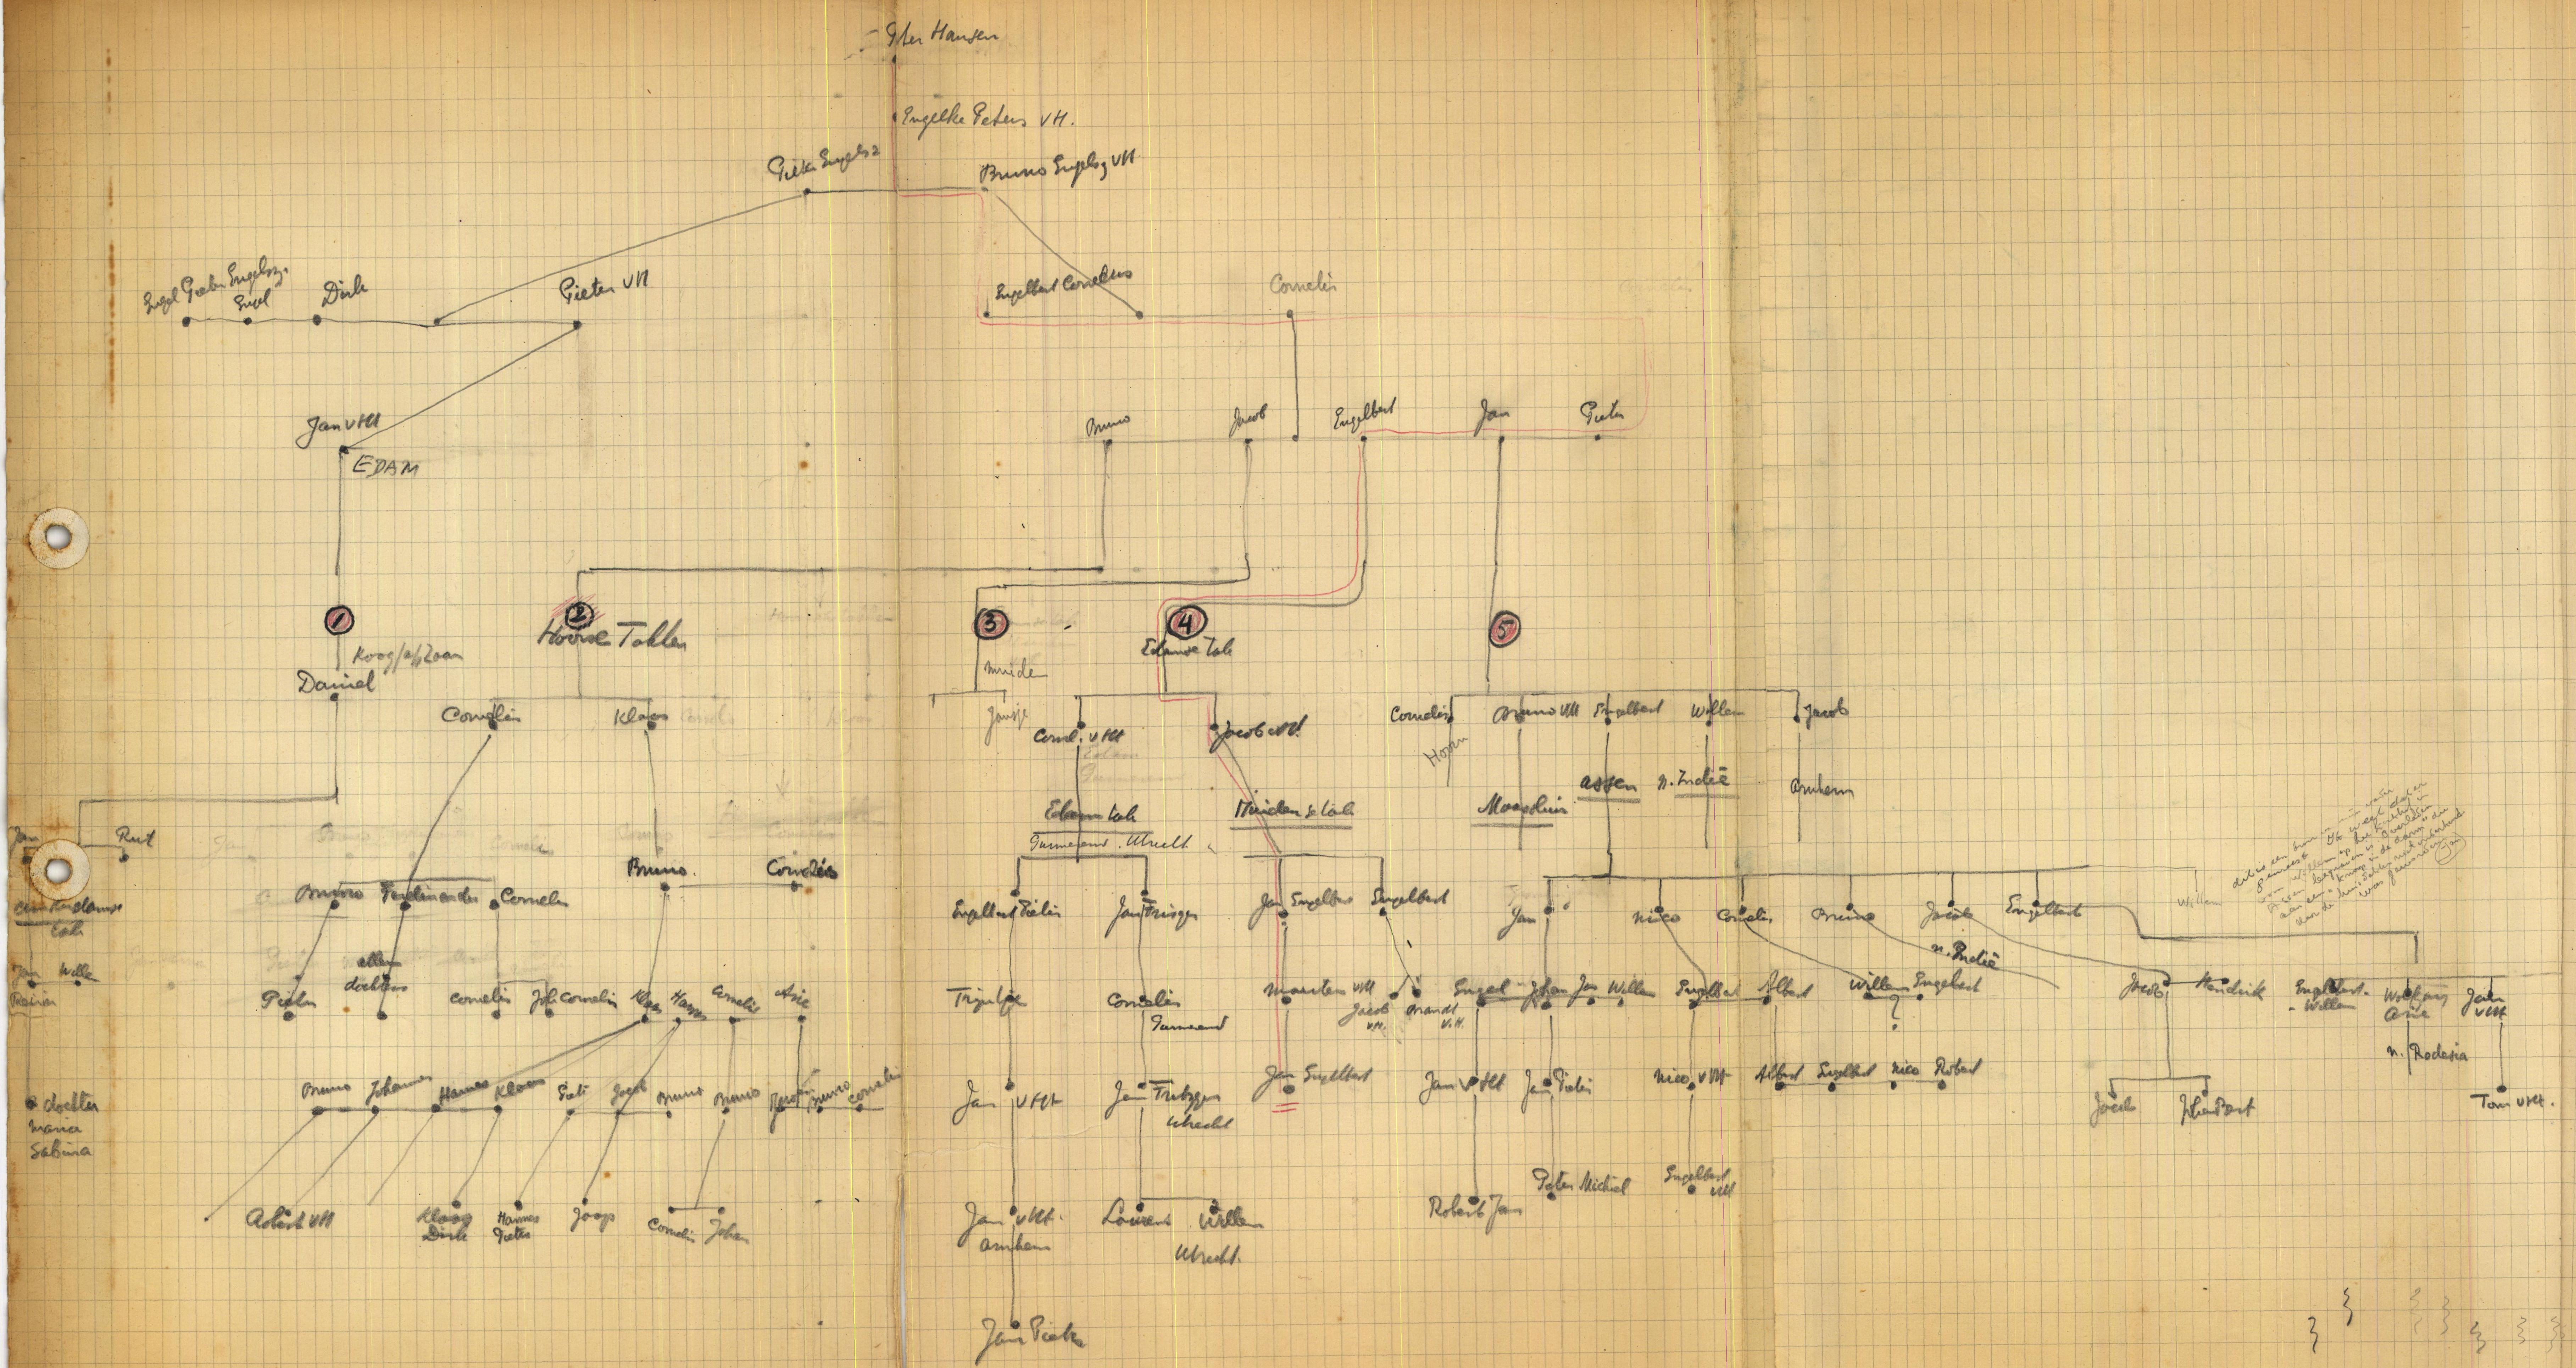 Peter Hansen
Engelke Peters VH.
Pieter Engelsz
Bruno Engelsz VH
Engel Pieter Engelsz.
Engel
Dirk
Pieter VH
Engelbert Cornelius
Cornelis
Jan VHH
EDAM
Bruno
Jacob
Engelbert
Jan
Pieter
1
2
3
4
5
Hoornse Takken
Edamse Tak
Koog a/d Zaan
Muiden
Daniel
Cornelis
Klaas
Jansje
Cornel. VHH
Jacob VH
Cornelis
Bruno VH
Engelbert
Willem
Jacob
Hoorn
Assen
N. Indië
Arnhem
Maassluis
Edam tak
Muidense tak
Purmerend. Utrecht
Jan
Rut
Bruno
Cornelis
Bruno
Ferdinandus
Cornelis
Engelbert Pieter
Jan
Jan Engelbert
Engelbert
Jan
Nico
Cornelis
Bruno
Jacob
Engelbert
Willem
Amsterdamse
tak
alleen
dochters
N. Indië
Jan
Willem
Pieter
Cornelis
Joh Cornelis
Klaas
Hannes
Cornelis
Arie
Trijntje
Cornelis
Purmerend
Maarten VH
Jacob
VH.
Brandt
V.H.
Engel
Johan
Jan
Willem
Engelbert
Albert
Willem
Engelbert
?
Jacob
Hendrik
Engelbert-
-Willem
Wolfgang
Arie
Jan
VHH
N. Rodesia
dochter
Maria
Sabina
Bruno
Johannes
Hannes
Klaas
Piet
Jacob
Bruno
Bruno
Bruno
Cornelis
Jan VHH
Jan
Utrecht
Jan Engelbert
Jan VHH
Jan Pieter
Nico VHH
Albert
Engelbert
Nico
Robert
Jacob
Tom VHH.
Albert VH
Klaas
Dirk
Hannes
Pieter
Joop
Cornelis
Johan
Jan VHH.
Arnhem
Laurens
Willem
Utrecht.
Robert Jan
Peter Michiel
Engelbert
VH
Jan Pieter